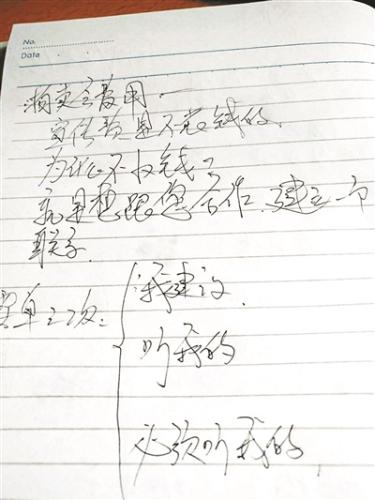 No.
Date
宣传费是不花钱的.
为什么不收钱?
就是想跟您合作.建立一个
联系.
买单三次:
我建议.
听我的
必须听我的.